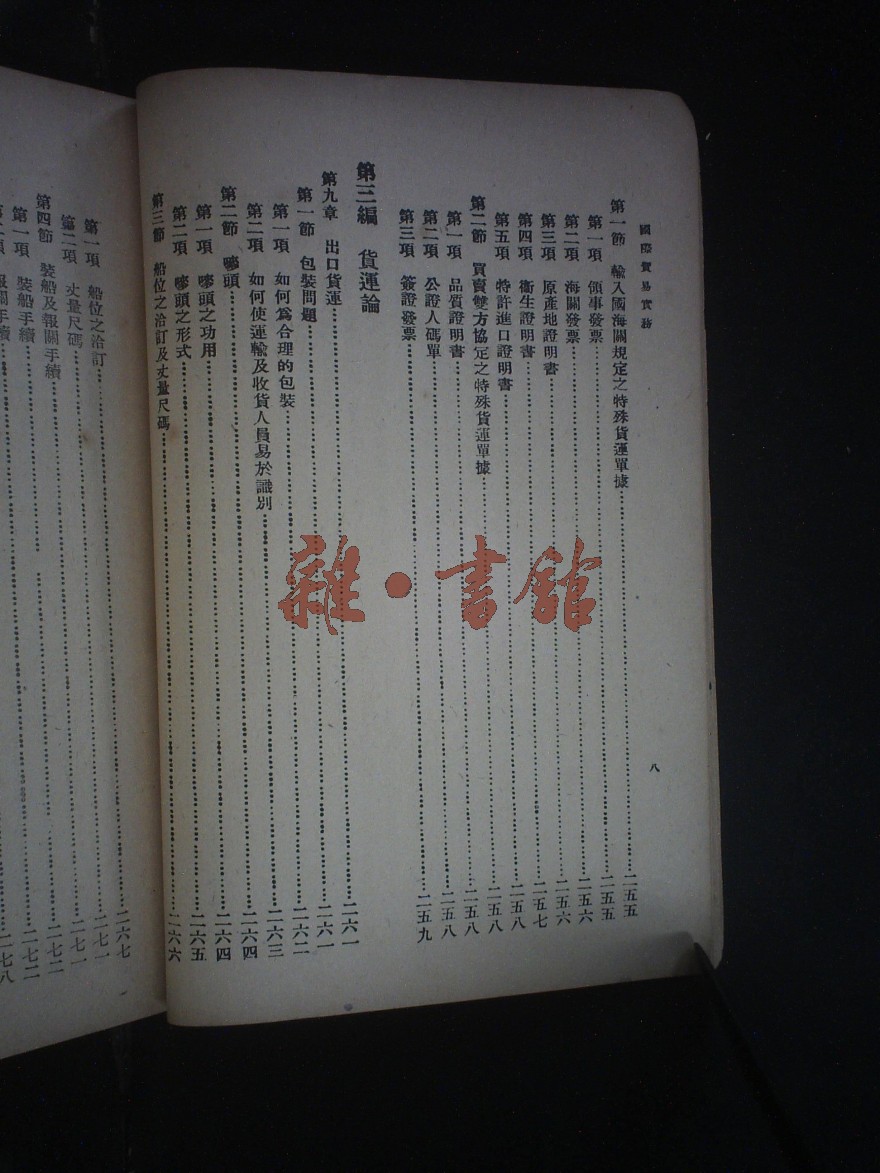 國際貿易實務
八
第一節 輸入國海關規定之特殊貨運單據……二五五
第一項 領事發票……二五五
第二項 海關發票……二五六
第三項 原產地證明書……二五六
第四項 衞生證明書……二五七
第五項 特許進口證明書……二五八
第二節 買賣雙方協定之特殊貨運單據……二五八
第一項 品質證明書……二五八
第二項 公證人碼單……二五八
第三項 簽證發票……二五九
第三編 貨運論
第九章 出口貨運……二六一
第一節 包裝問題……二六一
第一項 如何爲合理的包裝……二六二
第二項 如何使運輸及收貨人員易於識別……二六三
第二節 嘜頭……二六四
第一項 嘜頭之功用……二六四
第二項 嘜頭之形式……二六五
第三節 船位之洽訂及丈量尺碼……二六六
第一項 船位之洽訂……二六七
第二項 丈量尺碼……二七一
第四節 裝船及報關手續……二七一
第一項 裝船手續……二七二
第二項 報關手續……二七二
二七八
雜·書館